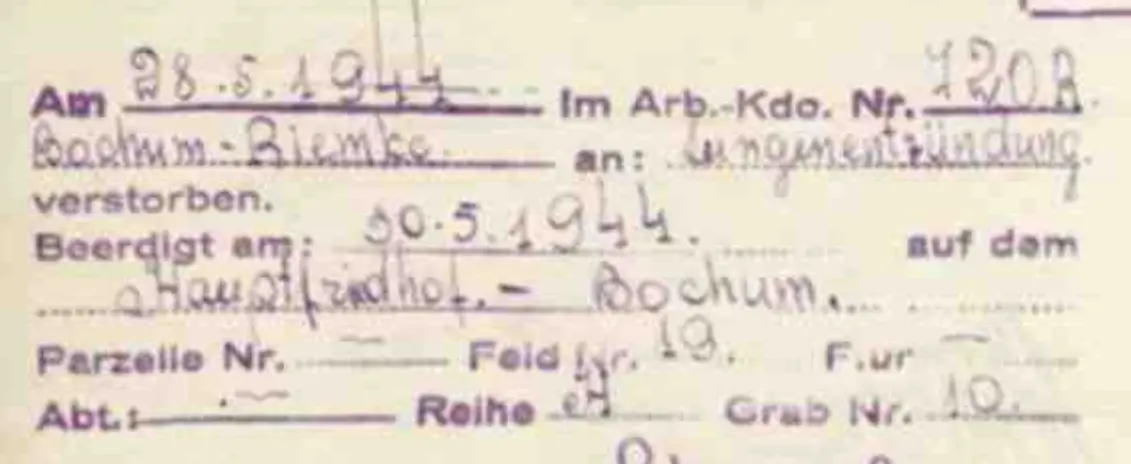 Am 28.5.1944 Im Arb.-Kdo. Nr. 720 R.
Bochum-Riemke. an: Lungenentzündung.
verstorben.
Beerdigt am: 30.5.1944. auf dem
Hauptfriedhof. - Bochum.
Parzelle Nr. — Feld Nr. 19. Flur —
Abt.: — Reihe Grab Nr. 10.